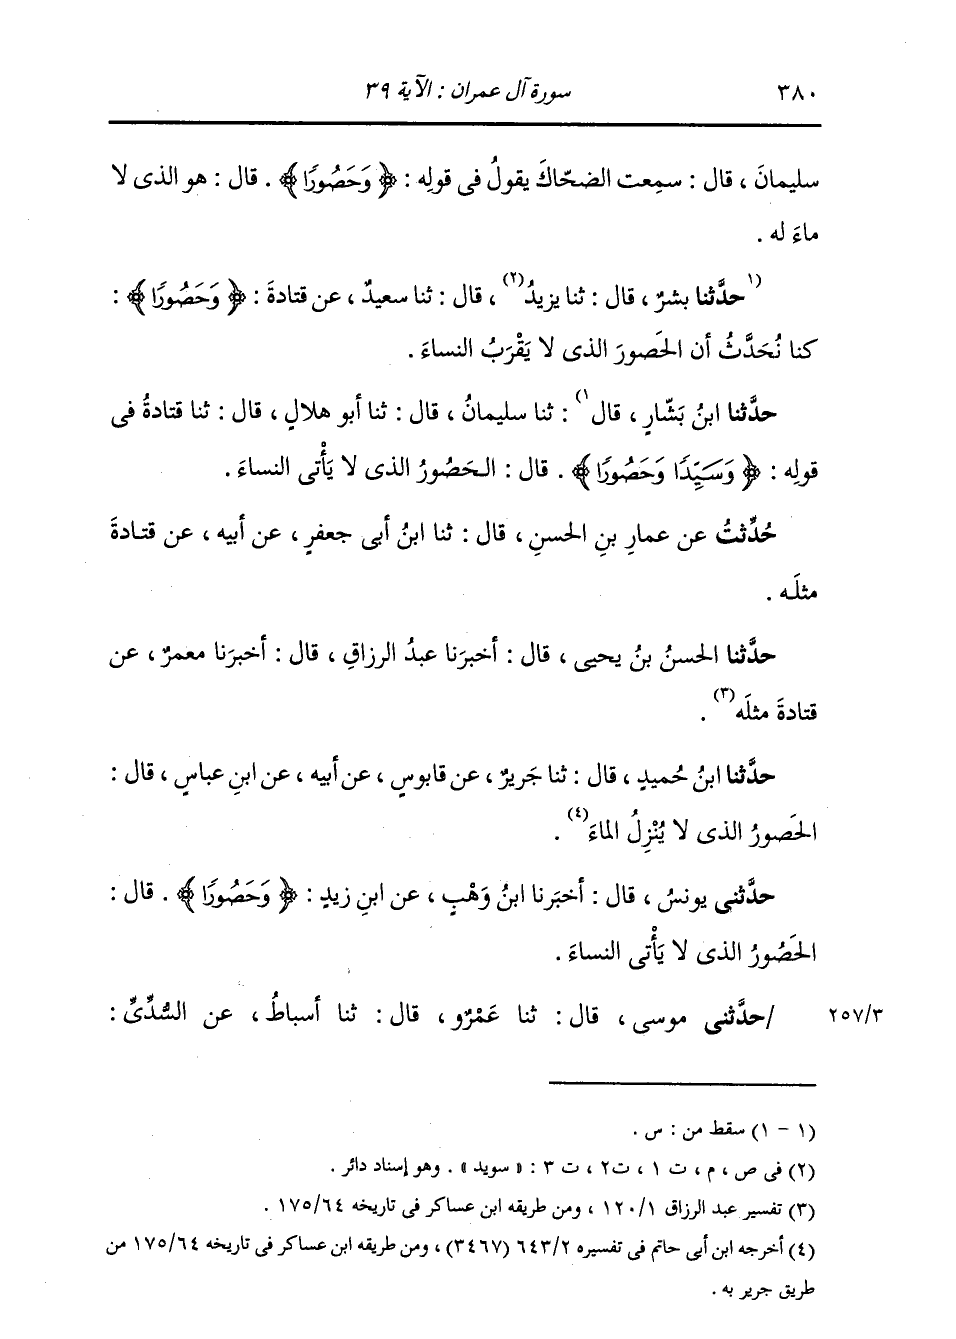 ٣٨٠ سورة آل عمران : الآية ٣٩
سليمانَ ، قال : سمِعت الضحّاكَ يقولُ فى قولِه : ﴿ وَحَصُورًا ﴾ . قال : هو الذى لا
ماءَ له .
(١ حدَّثنا بشرٌ ، قال : ثنا يزيدُ (٢) ، قال : ثنا سعيدٌ ، عن قتادةَ : ﴿ وَحَصُورًا ﴾ :
كنا نُحَدَّثُ أن الحَصورَ الذى لا يَقْرَبُ النساءَ .
حدَّثنا ابنُ بَشّارٍ ، قال ١) : ثنا سليمانُ ، قال : ثنا أبو هلالٍ ، قال : ثنا قتادةُ فى
قولِه : ﴿ وَسَيِّدًا وَحَصُورًا ﴾ . قال : الحَصُورُ الذى لا يَأْتى النساءَ .
حُدِّثتُ عن عمارِ بنِ الحسنِ ، قال : ثنا ابنُ أبى جعفرٍ ، عن أبيه ، عن قتادةَ
مثلَه .
حدَّثنا الحسنُ بنُ يحيى ، قال : أخبرَنا عبدُ الرزاقِ ، قال : أخبرَنا معمرٌ ، عن
قتادةَ مثلَه (٣) .
حدَّثنا ابنُ حُميدٍ ، قال : ثنا جَريرٌ ، عن قابوسٍ ، عن أبيه ، عن ابنِ عباسٍ ، قال :
الحَصورُ الذى لا يُنْزِلُ الماءَ (٤) .
حدَّثنى يونسُ ، قال : أخبَرنا ابنُ وَهْبٍ ، عن ابنِ زيدٍ : ﴿ وَحَصُورًا ﴾ . قال :
الحَصُورُ الذى لا يَأْتى النساءَ .
٢٥٧/٣ /حدَّثنى موسى ، قال : ثنا عَمْرٌو ، قال : ثنا أسباطُ ، عن السُّدِّىِّ :
(١ - ١) سقط من : س .
(٢) فى ص ، م ، ت ١ ، ت٢ ، ت ٣ : « سويد » . وهو إسناد دائر .
(٣) تفسير عبد الرزاق ١٢٠/١ ، ومن طريقه ابن عساكر فى تاريخه ١٧٥/٦٤ .
(٤) أخرجه ابن أبى حاتم فى تفسيره ٦٤٣/٢ (٣٤٦٧) ، ومن طريقه ابن عساكر فى تاريخه ١٧٥/٦٤ من
طريق جرير به .